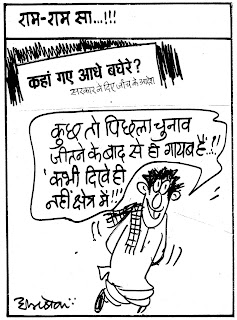 राम-राम सा...!!!
कहां गए आधे बघेरे?
सरकार ने दिए जाँच के आदेश
कुछ तो पिछला चुनाव
जीतने के बाद से ही गायब हैं..!!
'कभी दिखे ही
नहीं क्षेत्र में'!!